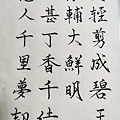 輕剪成碧
輔大鮮明
甚丁香千
人千里夢却